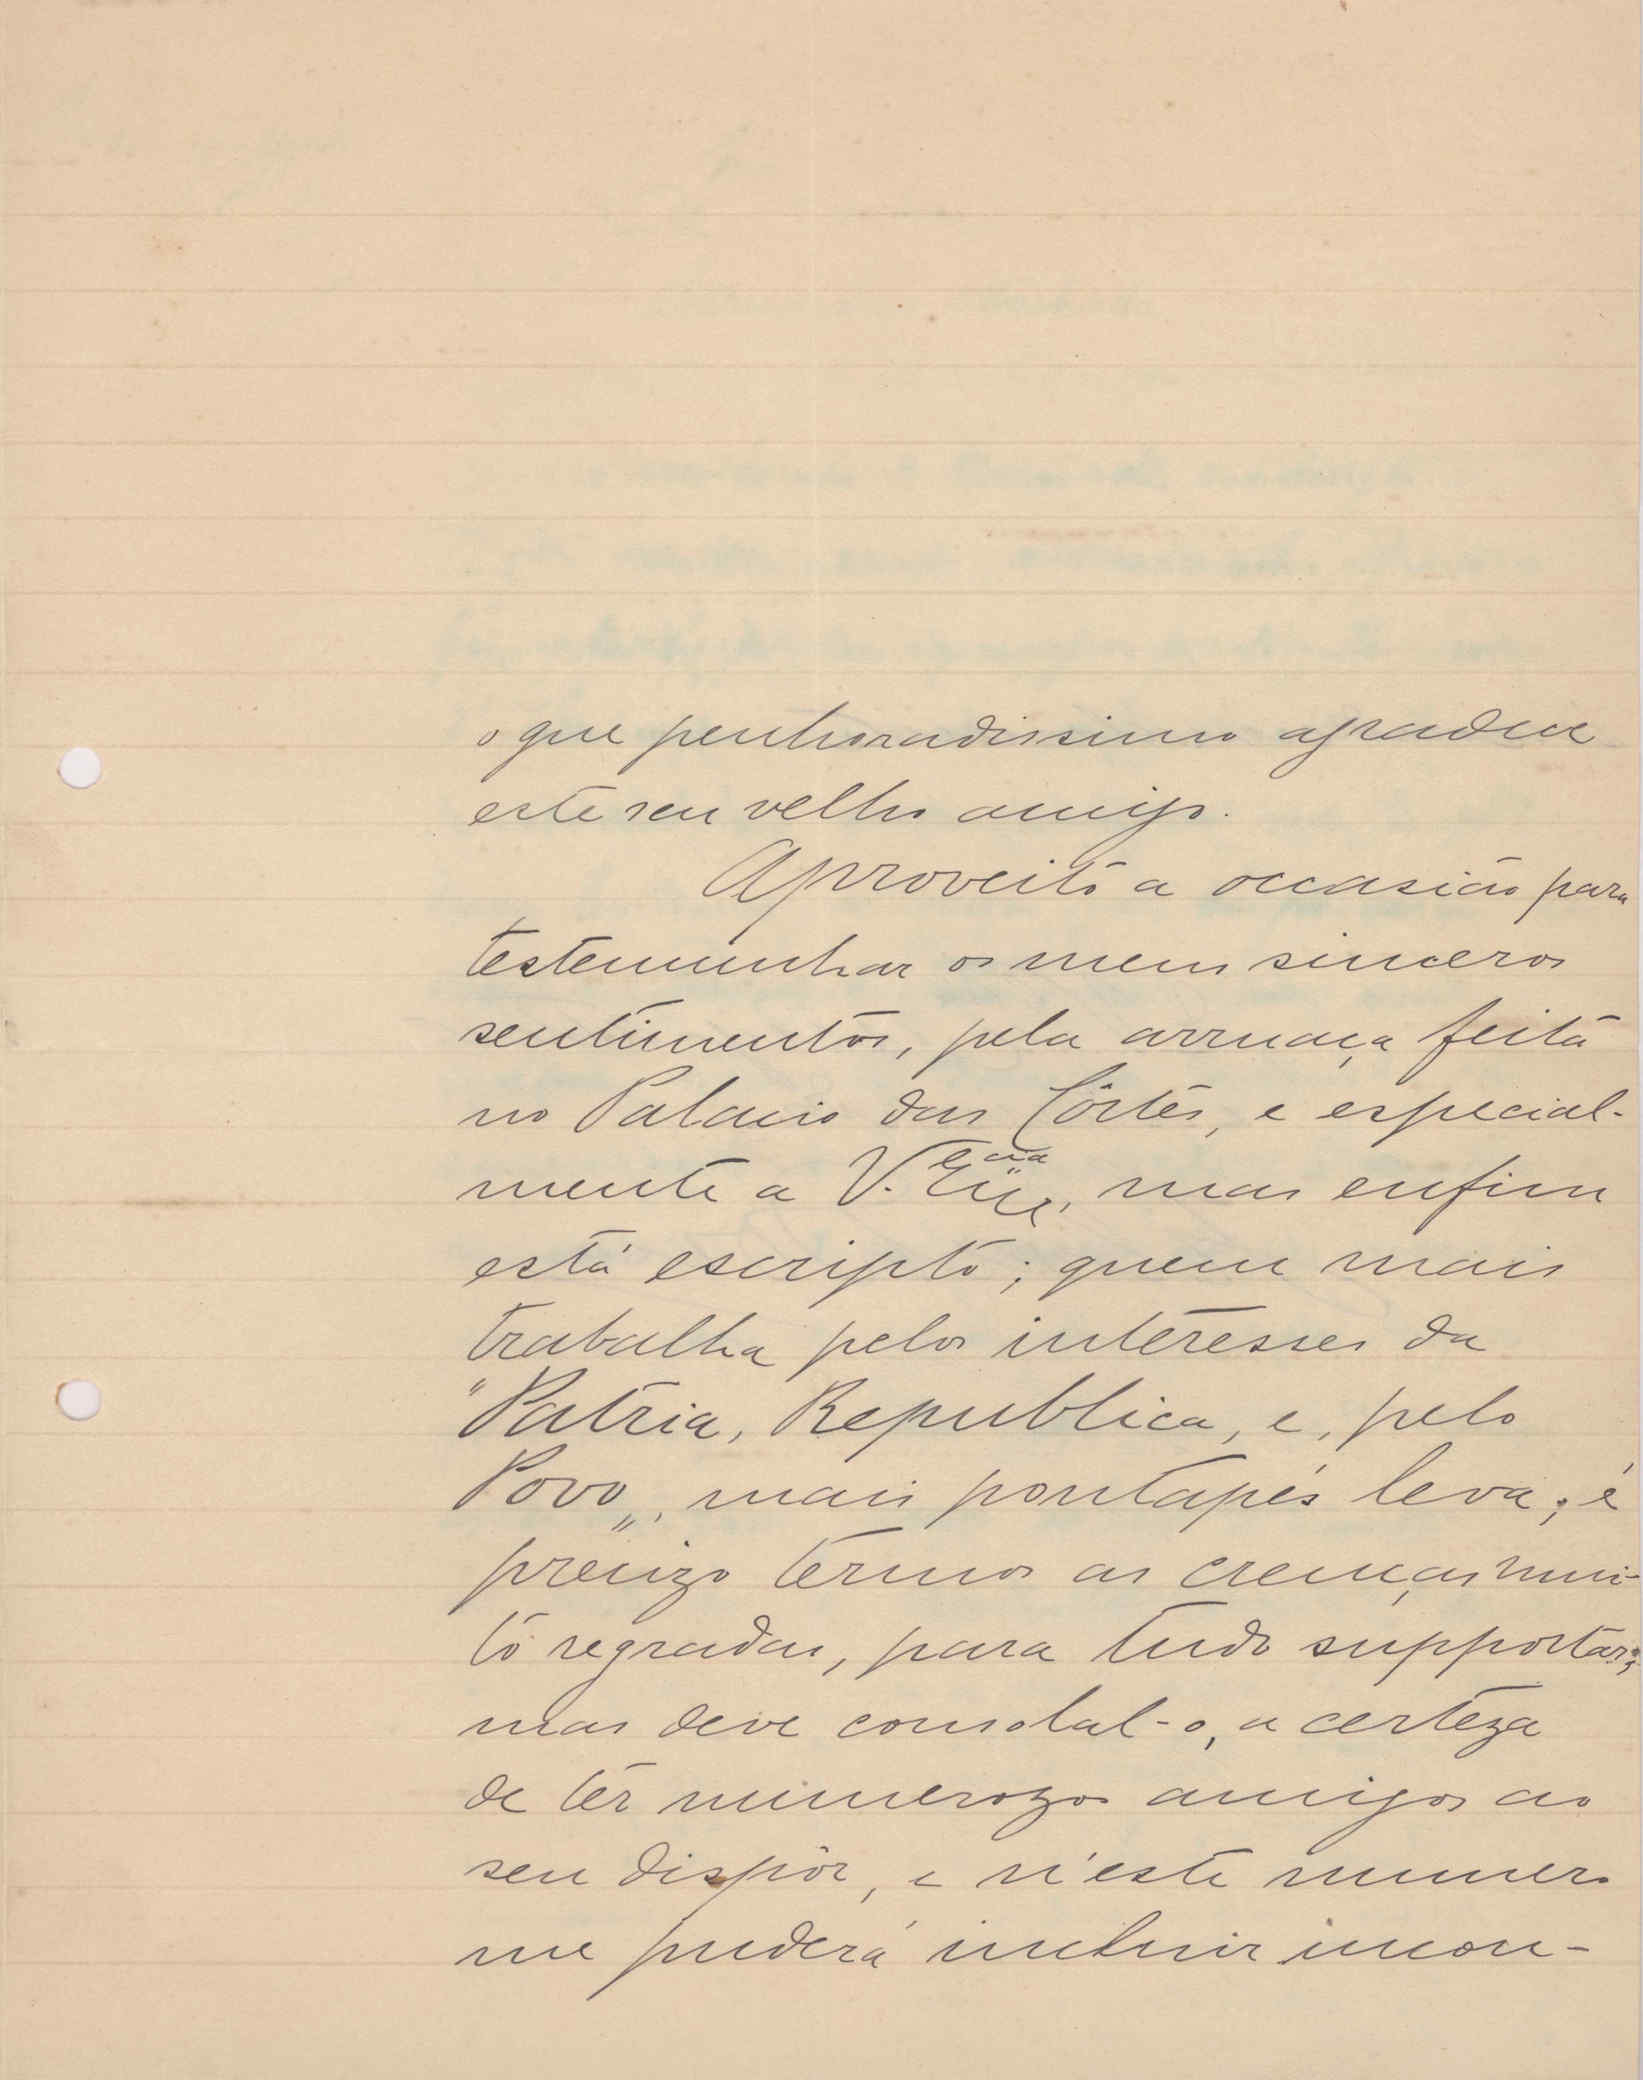 o que penhoradissimo agradece
este seu velho amigo.
Aproveito a occasião para
testemunhar os meus sinceros
sentimentos, pela arruaça feita
no Palacio das Côrtes, e especial-
mente a V. Ex.cia, mas enfim
está escripto; quem mais
trabalha pelos interesses da
"Patria, Republica, e, pelo
Povo", mais pontapés leva; é
precizo termos as crenças mui-
to regradas, para tudo supportar;
mas deve consolal-o, a certeza
de ter numerozos amigos ao
seu dispôr, e n'este numero
me puderá incluir incon-